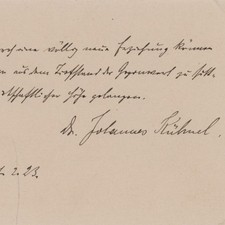 eine völlig neue Erziehung können
aus dem Tiefstand der Gegenwart zu sitt-
schaftlicher Höhe gelangen.
Dr. Johannes Kühnel.
2. 23.